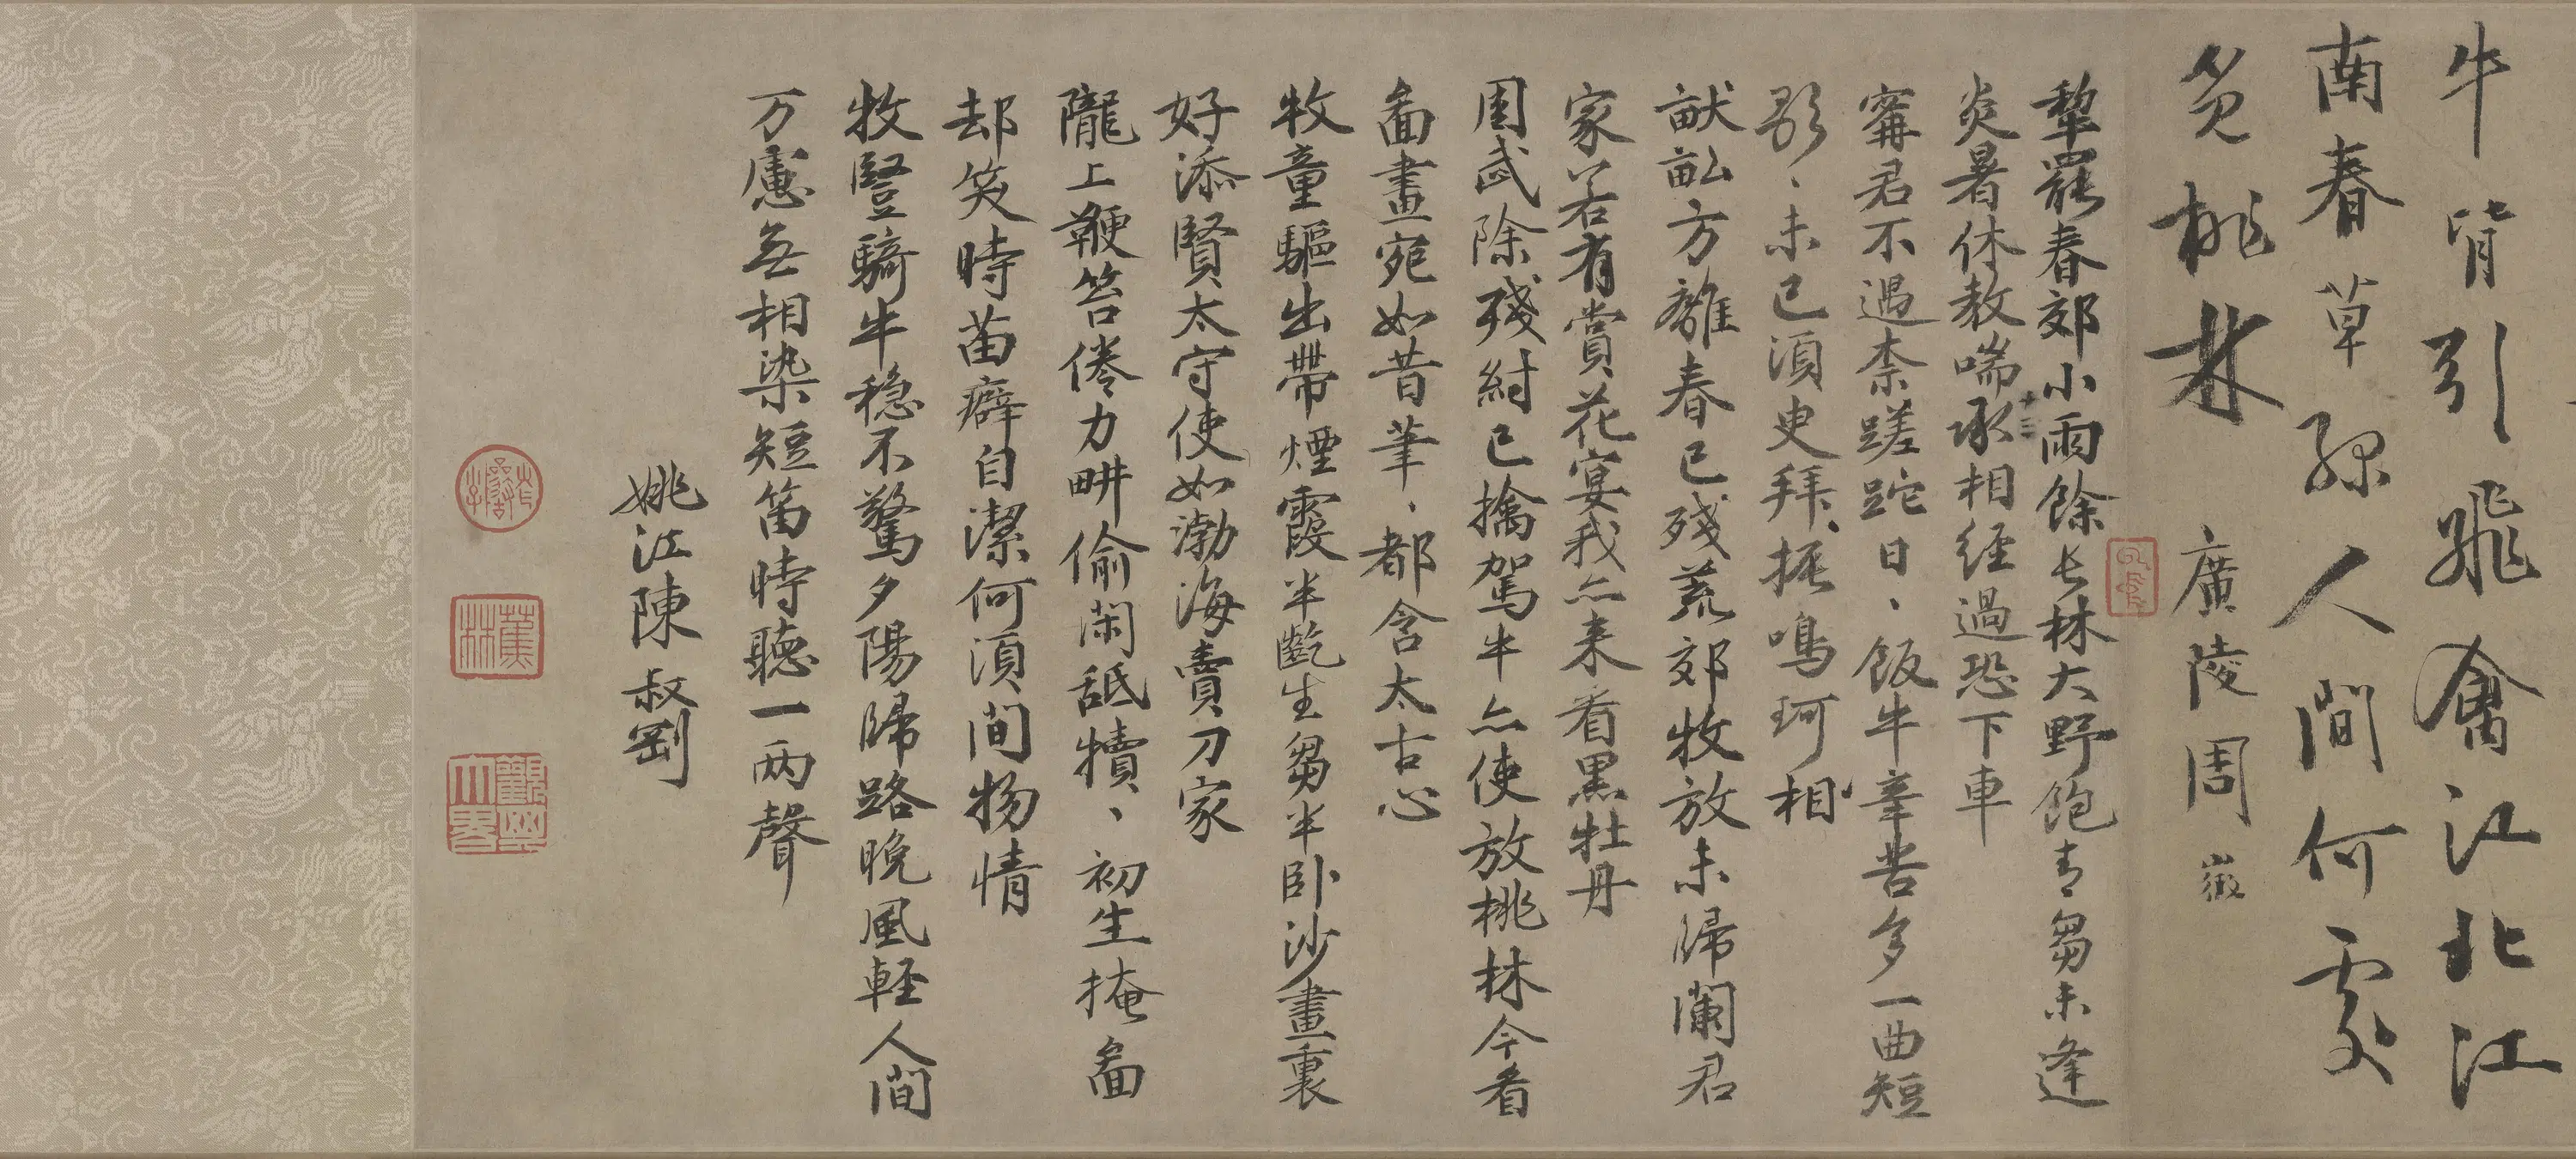 牛背引飛禽江北江
南春草綠人間何處
覓桃林
廣陵周徽
犂罷春郊小雨餘長林大野飽青芻未逢
炎暑休教喘丞相經過恐下車
十三
甯君不遇柰蹉跎日、飯牛辛苦多一曲短
歌、未已須臾拜、振鳴珂相
畎畝方離春已殘荒郊牧放未歸闌君
家若有賞花宴我亦来看黑牡丹
周武除殘紂已擒駕牛亦使放桃林今看
啚畫宛如昔筆、都含太古心
牧童驅出帶煙霞半齕生芻半卧沙畫裏
好添賢太守使如渤海賣刀家
隴上鞭笞倦力畊偷閑舐犢、初生掩啚
却笑時苗癖自潔何須間物情
牧豎騎牛穩不驚夕陽歸路晚風輕人間
万慮無相染短笛時聽一两聲
姚江陳叔剛
蕉林
觀其大略